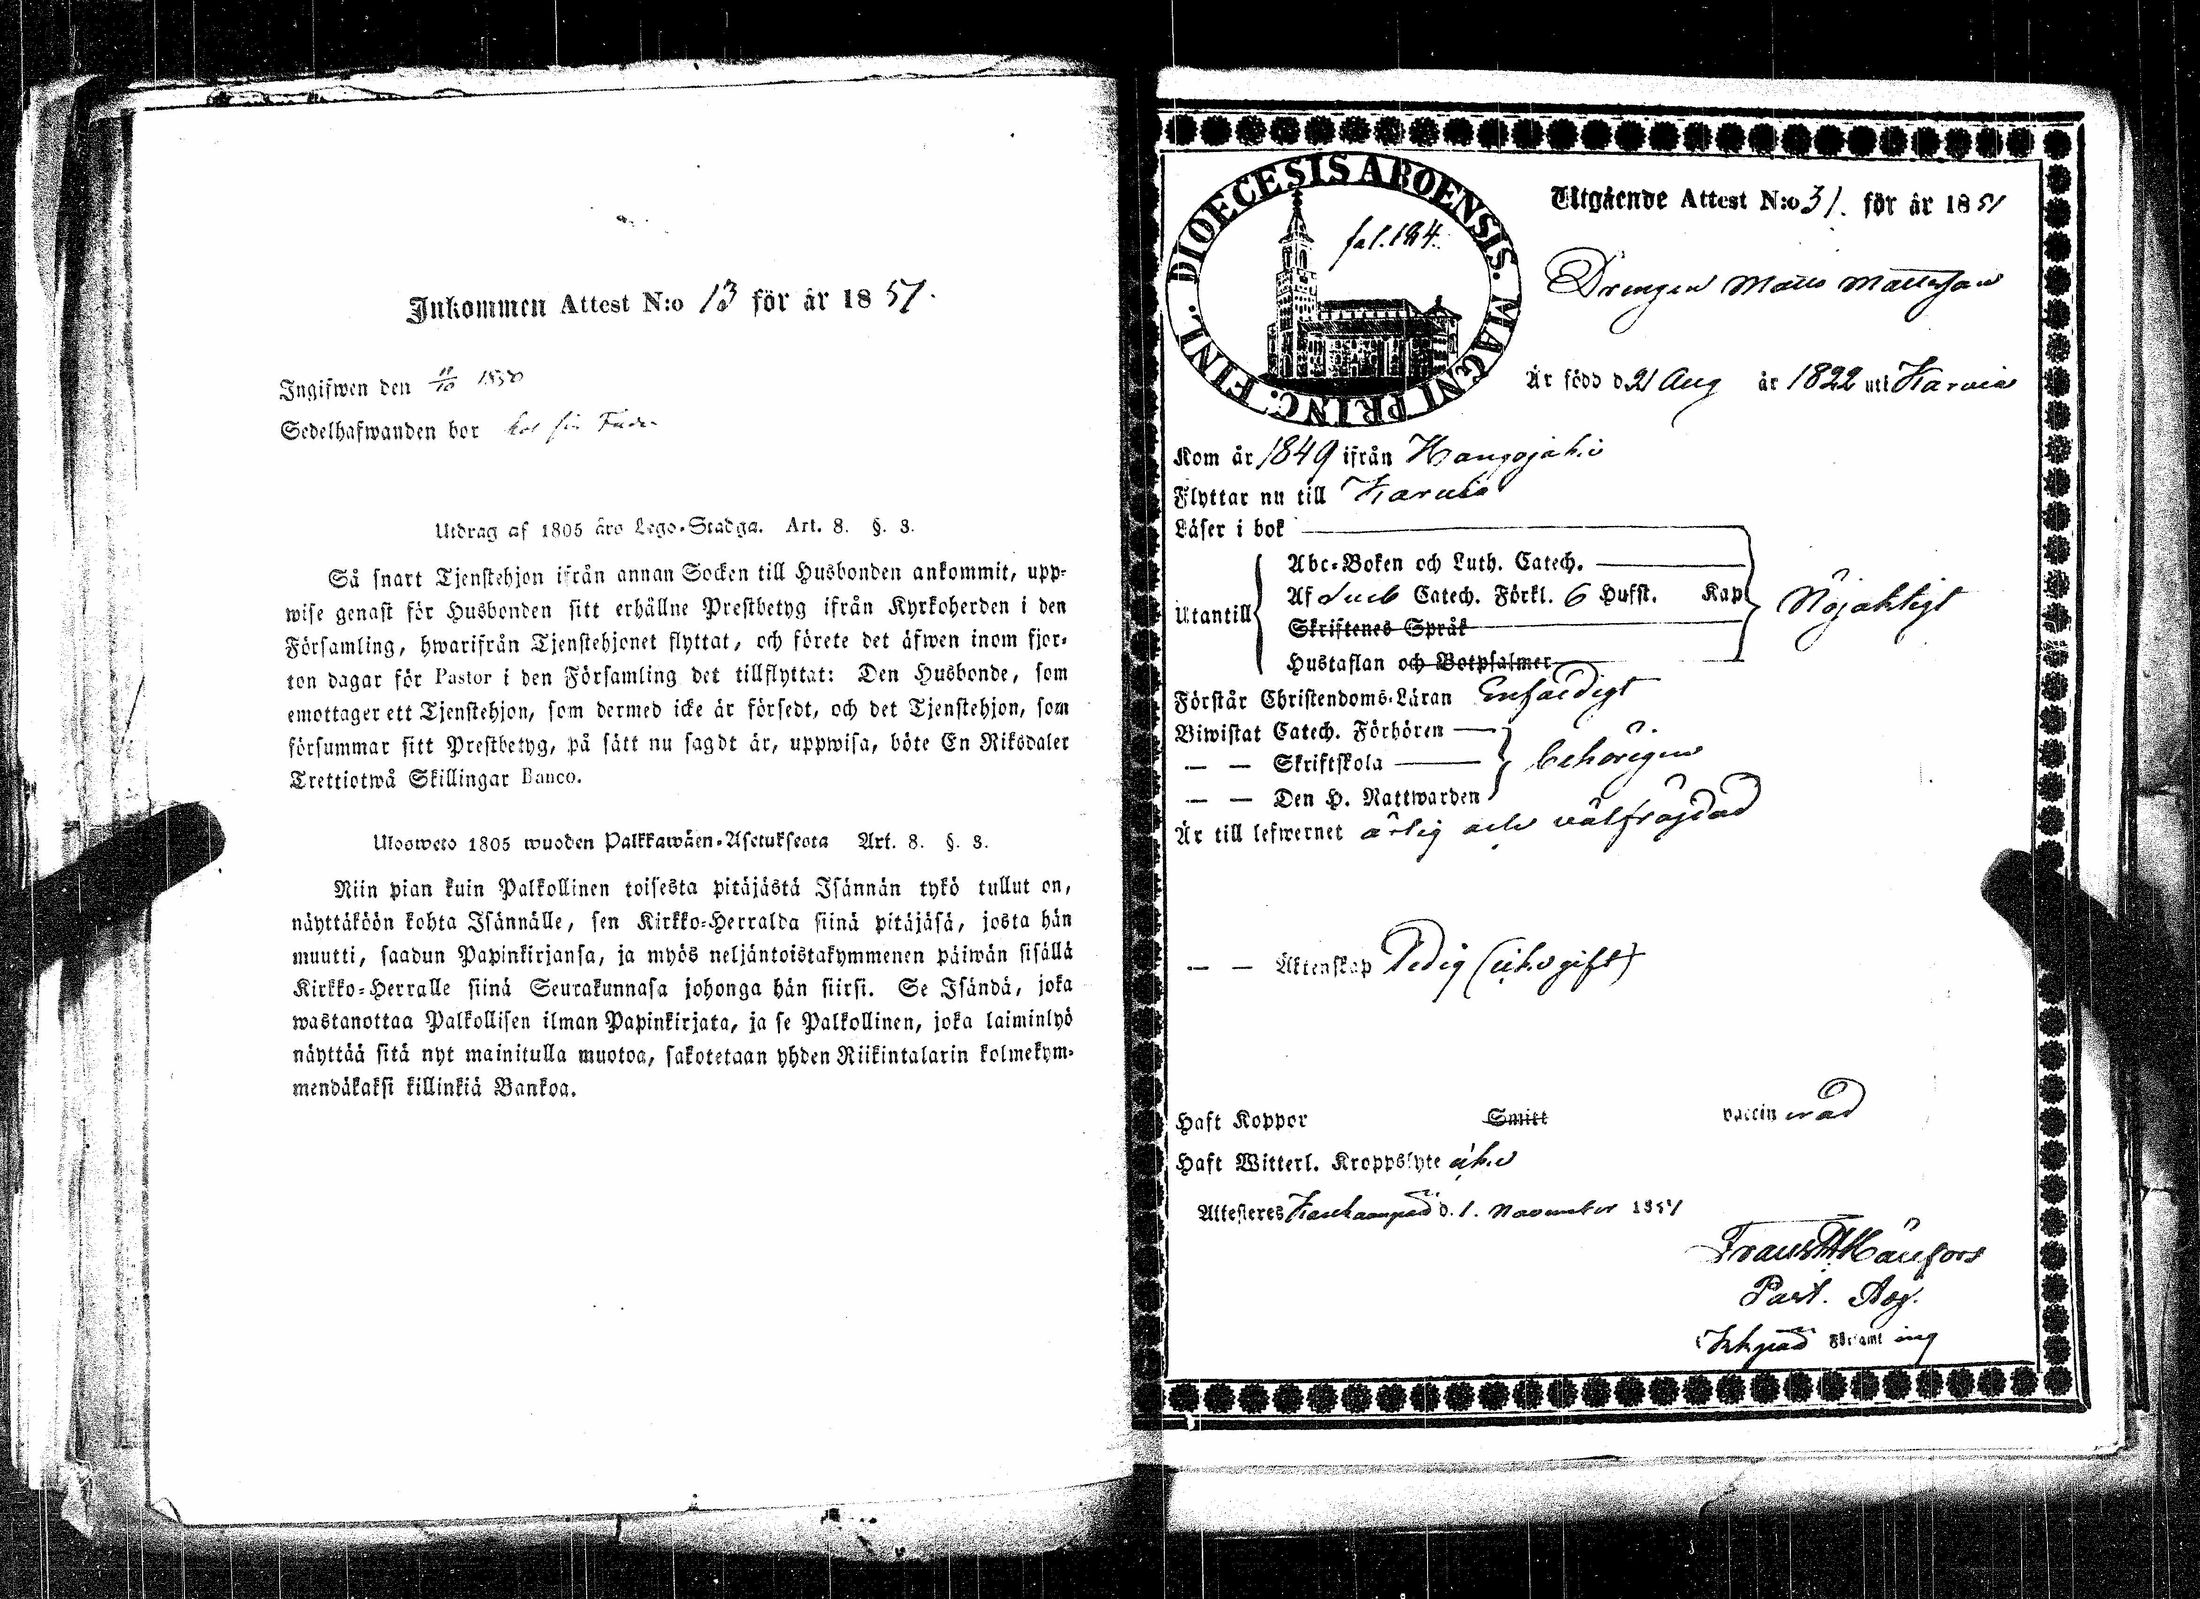 Inkommen Attest N:o 13 för år 1851.
Ingifwen den 11/10 1850
Sedelhafwanden bor hos sin Fader
Utdrag af 1805 åro Lego-Stadga. Art. 8. §. 3.
Så snart Tjenstehjon ifrån annan Socken till Husbonden ankommit, upp-
wise genast för Husbonden sitt erhållne Prestbetyg ifrån Kyrkoherden i den
Församling, hwarifrån Tjenstehjonet flyttat, och förete det äfwen inom fjor-
ton dagar för Pastor i den Församling det tillflyttat: Den Husbonde, som
emottager ett Tjenstehjon, som dermed icke är försedt, och det Tjenstehjon, som
försummar sitt Prestbetyg, på sätt nu sagdt är, uppwisa, böte En Riksdaler
Trettiotwå Skillingar Banco.
Uloswets 1805 wuoden Palkkawäen-Asetuksesta Art. 8. §. 3.
Niin pian kuin Palkollinen toisesta pitäjästä Isännän tykö tullut on,
näyttäköön kohta Isännälle, sen Kirkko-Herralda siinä pitäjäsä, josta hän
muutti, saadun Papinkirjansa, ja myös neljäntoistakymmenen päiwän sisällä
Kirkko-Herralle siinä Seurakunnasa johonga hän siirsi. Se Isändä, joka
wastanottaa Palkollisen ilman Papinkirjata, ja se Palkollinen, joka laiminlyö
näyttää sitä nyt mainitulla muotoa, sakotetaan yhden Riikintalarin kolmekym-
mendäkaksi killinkiä Bankoa.
DIOECESIS ABOENSIS. MAGNI PRINC. FINL.
fol. 184.
Utgående Attest N:o 31. för år 1851
Drengen Matts Mattsson
Är född d. 21 Aug år 1822 uti Karvia
Kom år 1849 ifrån Hongojoki
Flyttar nu till Karvia
Läser i bok
Abc-Boken och Luth. Catech.
Utantill Af Catech. Förkl. 6 Hufst. Kap Nöjaktigt
Skriftenes Språk
Hustaflan och Botpsalmer
Förstår Christendoms-Läran Enfaldigt
Biwistat Catech. Förhören
— — Skriftskola behörigen
— — Den H. Nattwarden
Är till lefwernet ärlig och välfräjdad
— — Äktenskap Ledig (icke gift)
Haft Koppor Smitt vaccinerad
Haft Witterl. Kroppslyte icke
Attesteres d. 1. November 1851
Past. Adj.
Församling